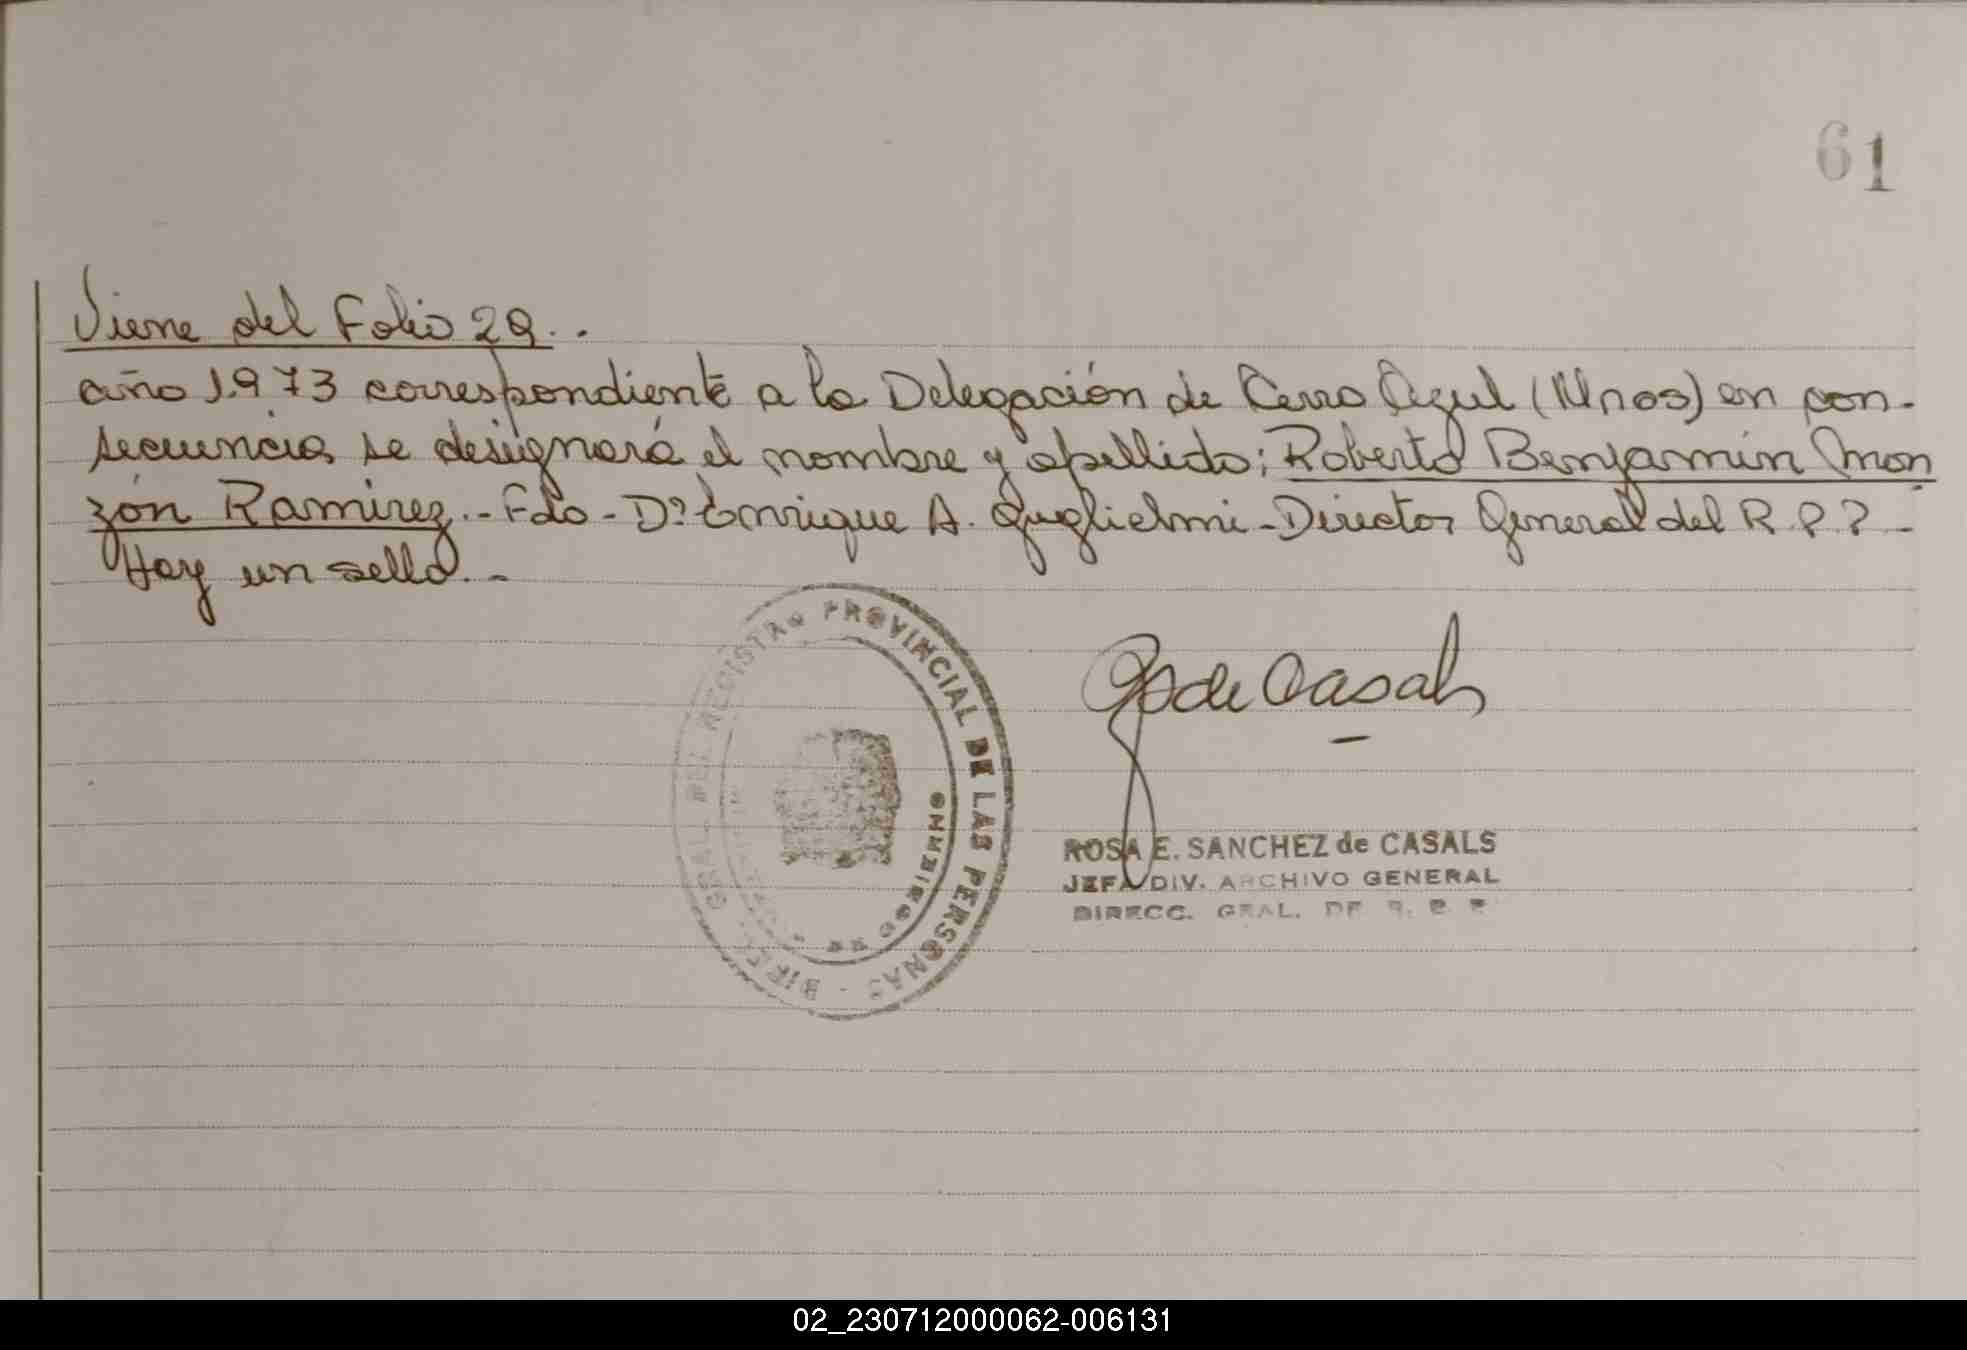 61
Viene del Folio 29..
año 1.973 correspondiente a la Delegación de Cerro Azul (Mnes) en con-
secuencia se designará el nombre y apellido; Roberto Benjamín Mon
zón Ramirez.- Fdo - Dr Enrique A. Guglielmi - Director General del R.P.P -
Hay un sello.-
DIREC. GRAL. DEL REGISTRO PROVINCIAL DE LAS PERSONAS -
de Casals
ROSA E. SANCHEZ de CASALS
JEFA DIV. ARCHIVO GENERAL
DIRECC. GRAL. DE R. P. P.
02_230712000062-006131